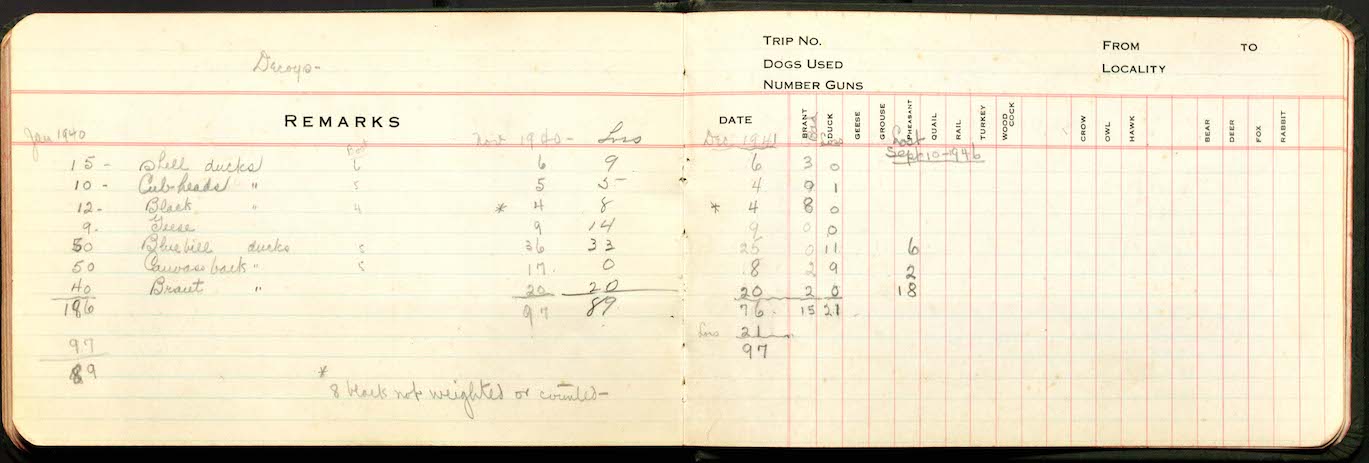 Decoys-
REMARKS
Jan 1940 Bot Nov 1940- Loss
15 - Shell ducks 6 6 9
10 - Cub-heads " 5 5 5
12 - Black " 4 * 4 8
9. Geese 9 14
50 Bluebill ducks 5 36 33
50 Canvas back " 5 17. 0
40 Brant " 20 20
186 97 89
97
89
*
8 black not weighted or counted-
TRIP NO. FROM TO
DOGS USED LOCALITY
NUMBER GUNS
DATE BRANT DUCK GEESE GROUSE PHEASANT QUAIL RAIL TURKEY WOOD COCK CROW OWL HAWK BEAR DEER FOX RABBIT
Dec 1941 Bad Loss Lost
Sept 10-1946
6 3 0
4 9 1
* 4 8 0
9 0 0
25 0 11 6
8 2 9 2
20 2 0 18
76 15 21
Loss 21
97